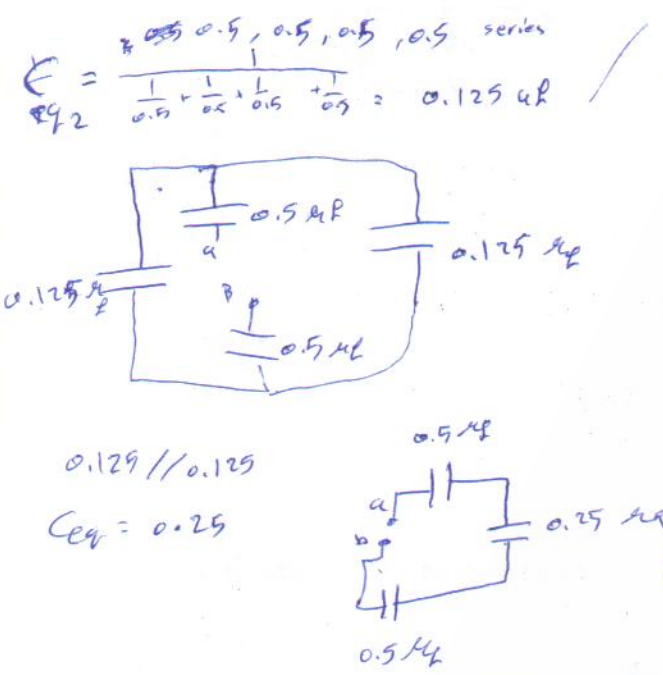 0.5, 0.5, 0.5, 0.5 series
C eq 2 = 1 / (1/0.5 + 1/0.5 + 1/0.5 + 1/0.5) = 0.125 uf
0.5 μf
a
0.125 μf
0.125 μf
B
0.5 μf
0.125 // 0.125
Ceq = 0.25
0.5 μf
a
0.25 μf
b
0.5 μf